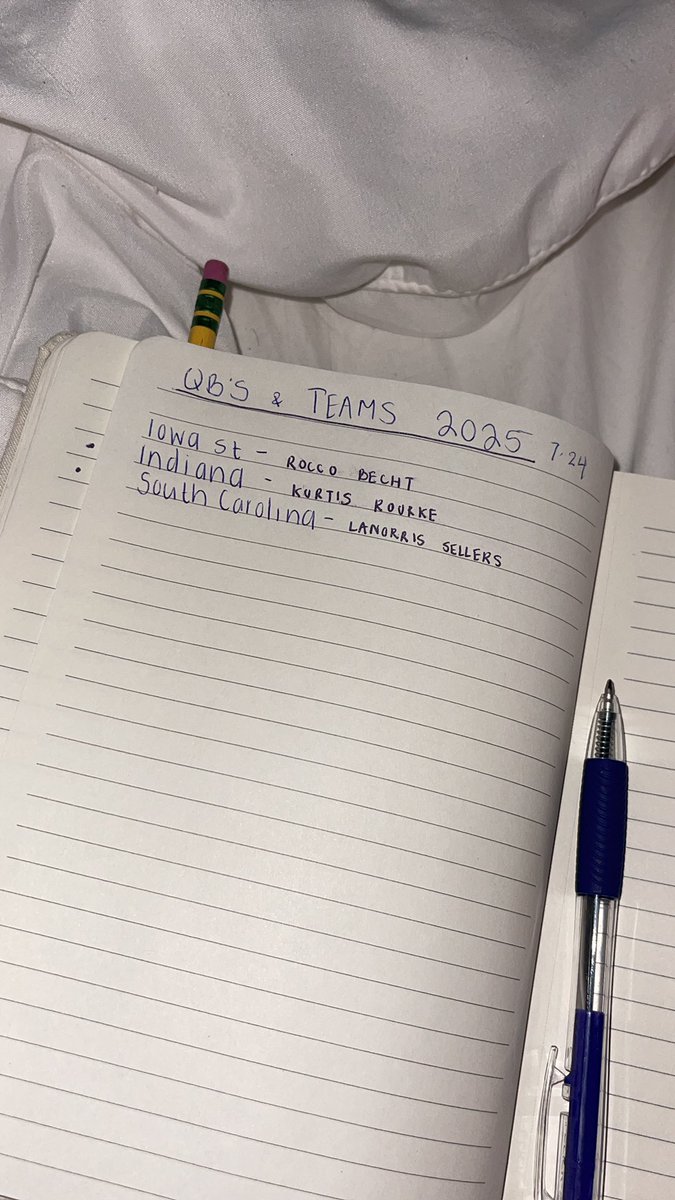 QB'S & TEAMS 2025 7.24
Iowa St - ROCCO BECHT
Indiana - KURTIS ROURKE
South Carolina - LANORRIS SELLERS